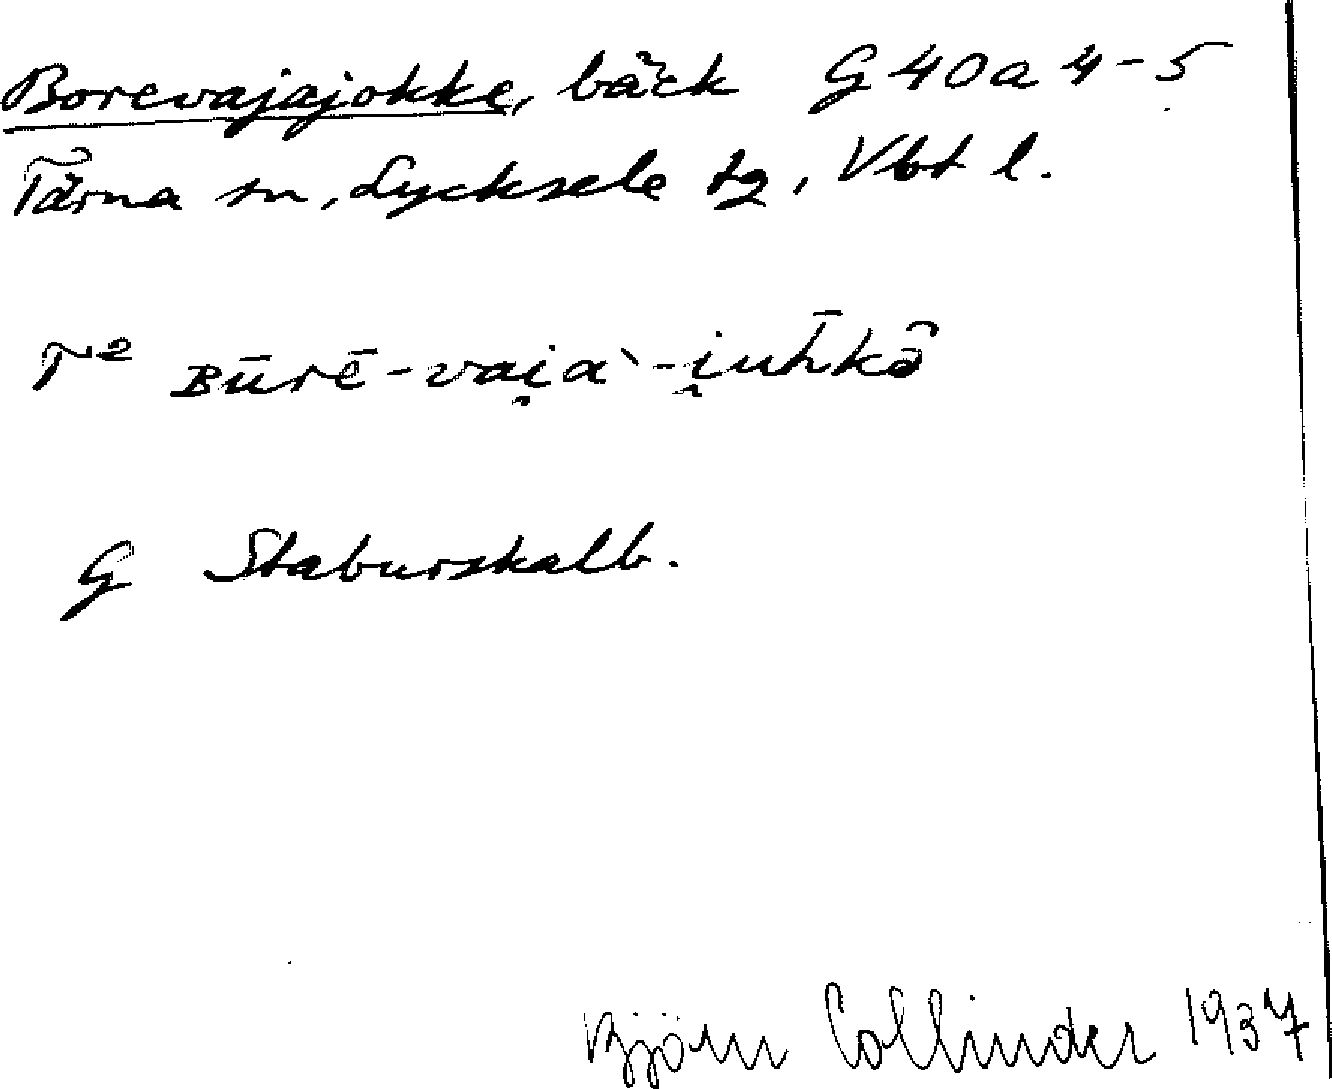 Borevajajokke, bäck G 40 a 4-5
Tärna sn, Lycksele tg, Vbt l.
T² ʙūrē-vai̯a`-i̯uh̄kâ
G Staburskalb.
Björn Collinder 1937